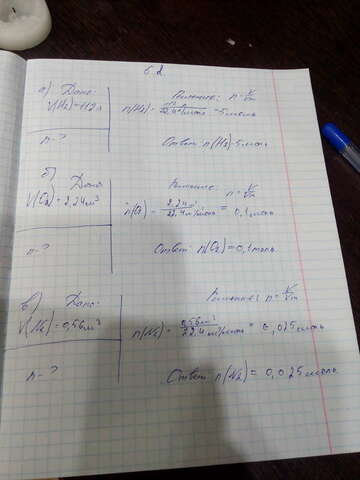 6.2.
а) Дано:
V(H₂)=112л
n-?
Решение: n=V/Vm
n(H₂)= /22,4л/моль =5моль
Ответ: n(H₂)-5моль
б) Дано:
V(O₂)=2,24м³
n-?
Решение: n=V/Vm
n(O₂)=2,24м³/22,4м³/моль=0,1моль
Ответ: n(O₂)=0,1моль
в) Дано:
V(N₂)=0,56м³
n-?
Решение: n=V/Vm
n(N₂)=0,56м³/22,4м³/моль=0,025моль
Ответ n(N₂)=0,025моль